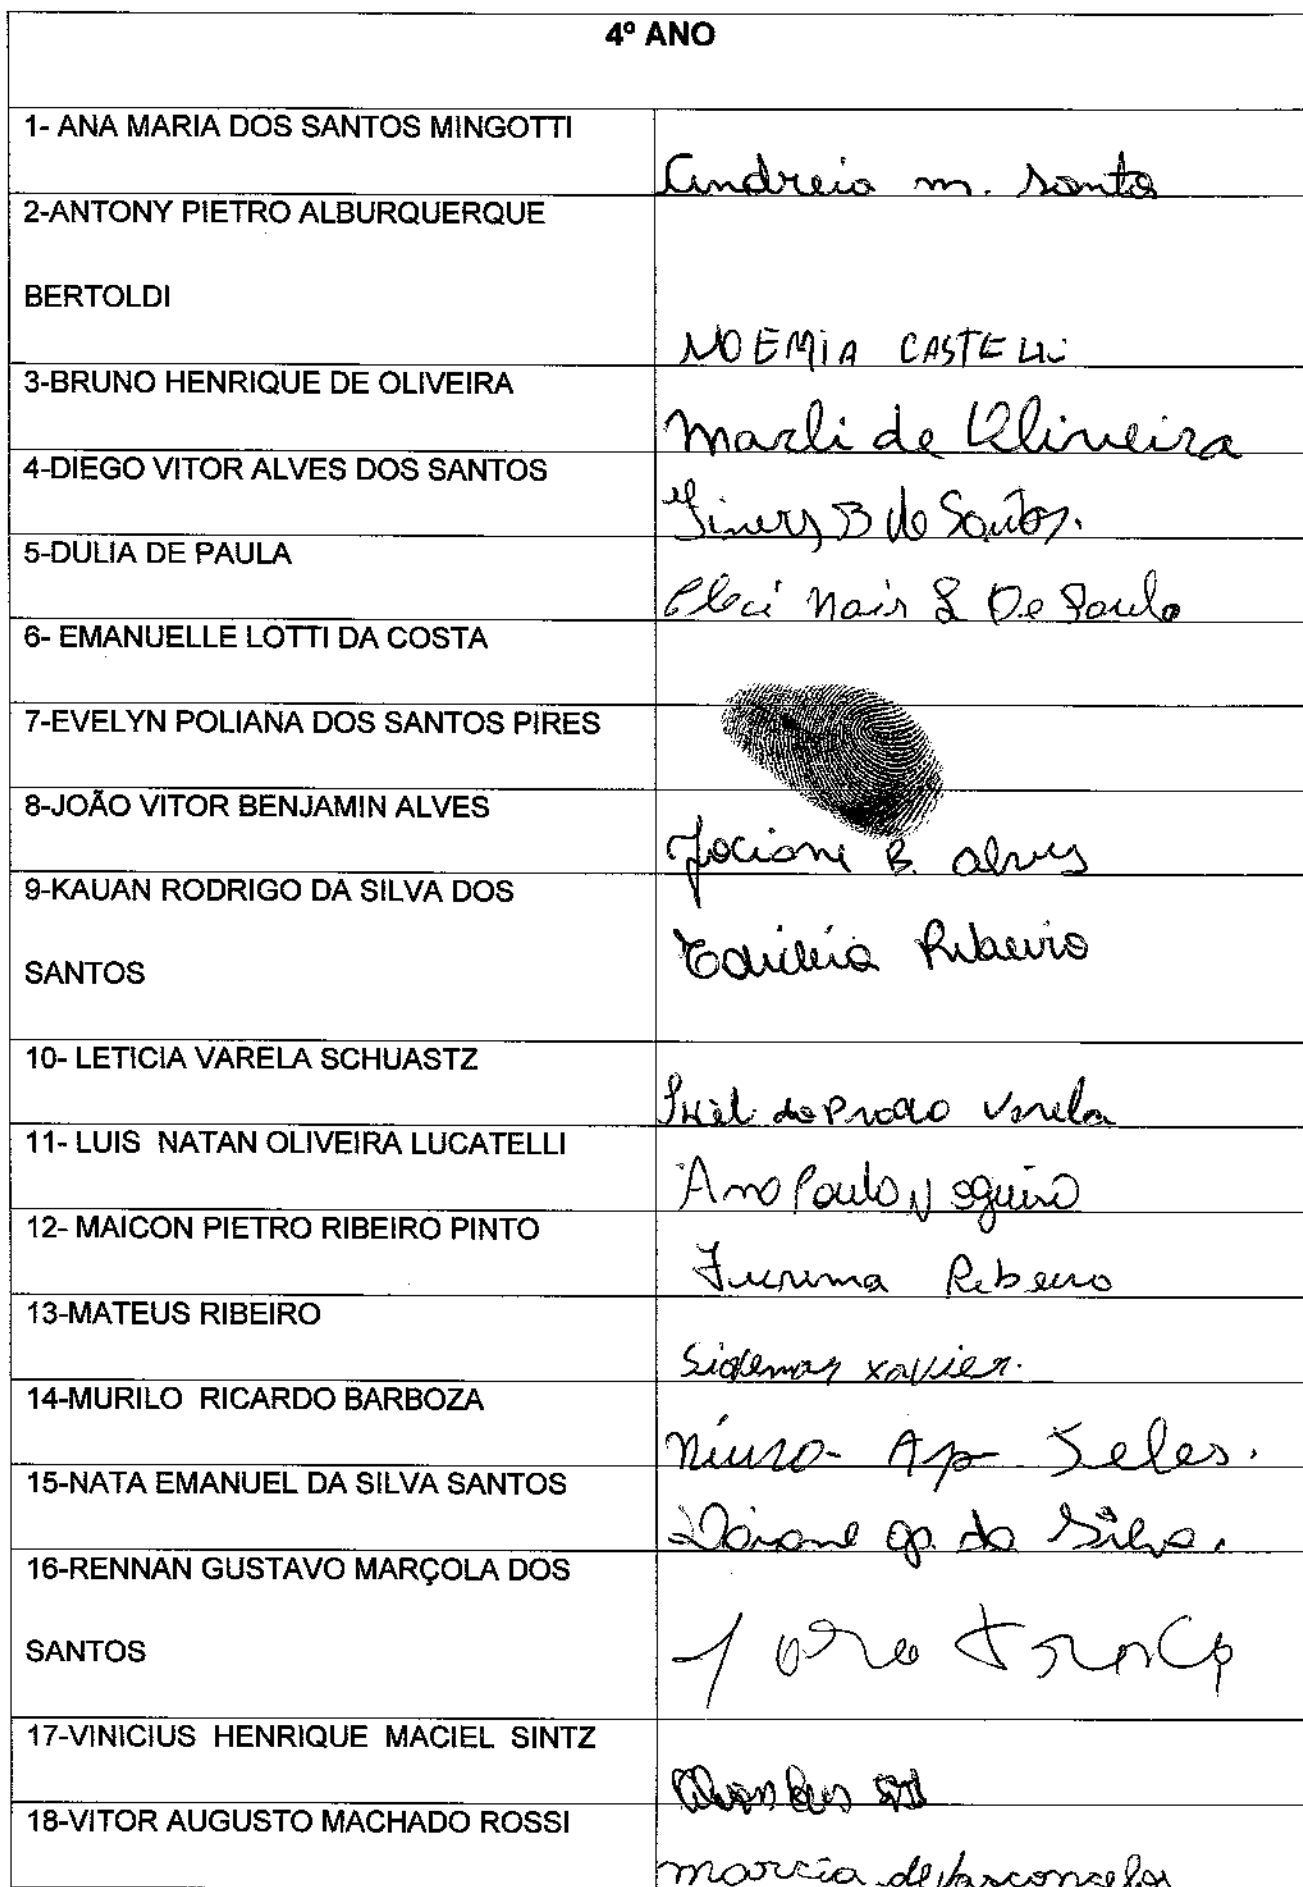 4º ANO
1- ANA MARIA DOS SANTOS MINGOTTI
Andreia m. Santos
2-ANTONY PIETRO ALBURQUERQUE
BERTOLDI
NOEMIA CASTELLI
3-BRUNO HENRIQUE DE OLIVEIRA
Marli de Oliveira
4-DIEGO VITOR ALVES DOS SANTOS
B de Santos.
5-DULIA DE PAULA
Nair De Paula
6- EMANUELLE LOTTI DA COSTA
7-EVELYN POLIANA DOS SANTOS PIRES
8-JOÃO VITOR BENJAMIN ALVES
Jociani B. Alves
9-KAUAN RODRIGO DA SILVA DOS
SANTOS
Ribeiro
10- LETICIA VARELA SCHUASTZ
do Prado Varela
11- LUIS NATAN OLIVEIRA LUCATELLI
Ana Paula Nogueira
12- MAICON PIETRO RIBEIRO PINTO
Ribeiro
13-MATEUS RIBEIRO
Sidemar Xavier.
14-MURILO RICARDO BARBOZA
Ap Teles.
15-NATA EMANUEL DA SILVA SANTOS
ap. da Silva.
16-RENNAN GUSTAVO MARÇOLA DOS
SANTOS
17-VINICIUS HENRIQUE MACIEL SINTZ
18-VITOR AUGUSTO MACHADO ROSSI
Marcia de Vasconcelos